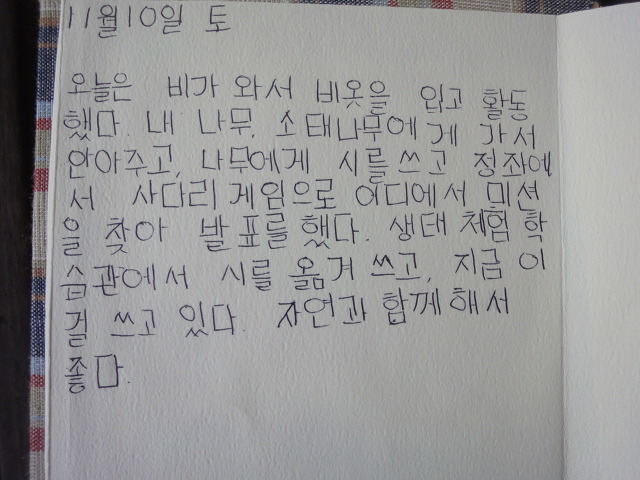 11월10일 토
오늘은 비가 와서 비옷을 입고 활동
했다. 내 나무, 소태나무에게 가서
안아주고, 나무에게 시를 쓰고 정좌에
서 사다리게임으로 어디에서 미션
을 찾아 발표를 했다. 생태체험학
습관에서 시를 옮겨 쓰고, 지금 이
걸 쓰고 있다. 자연과 함께해서
좋다.